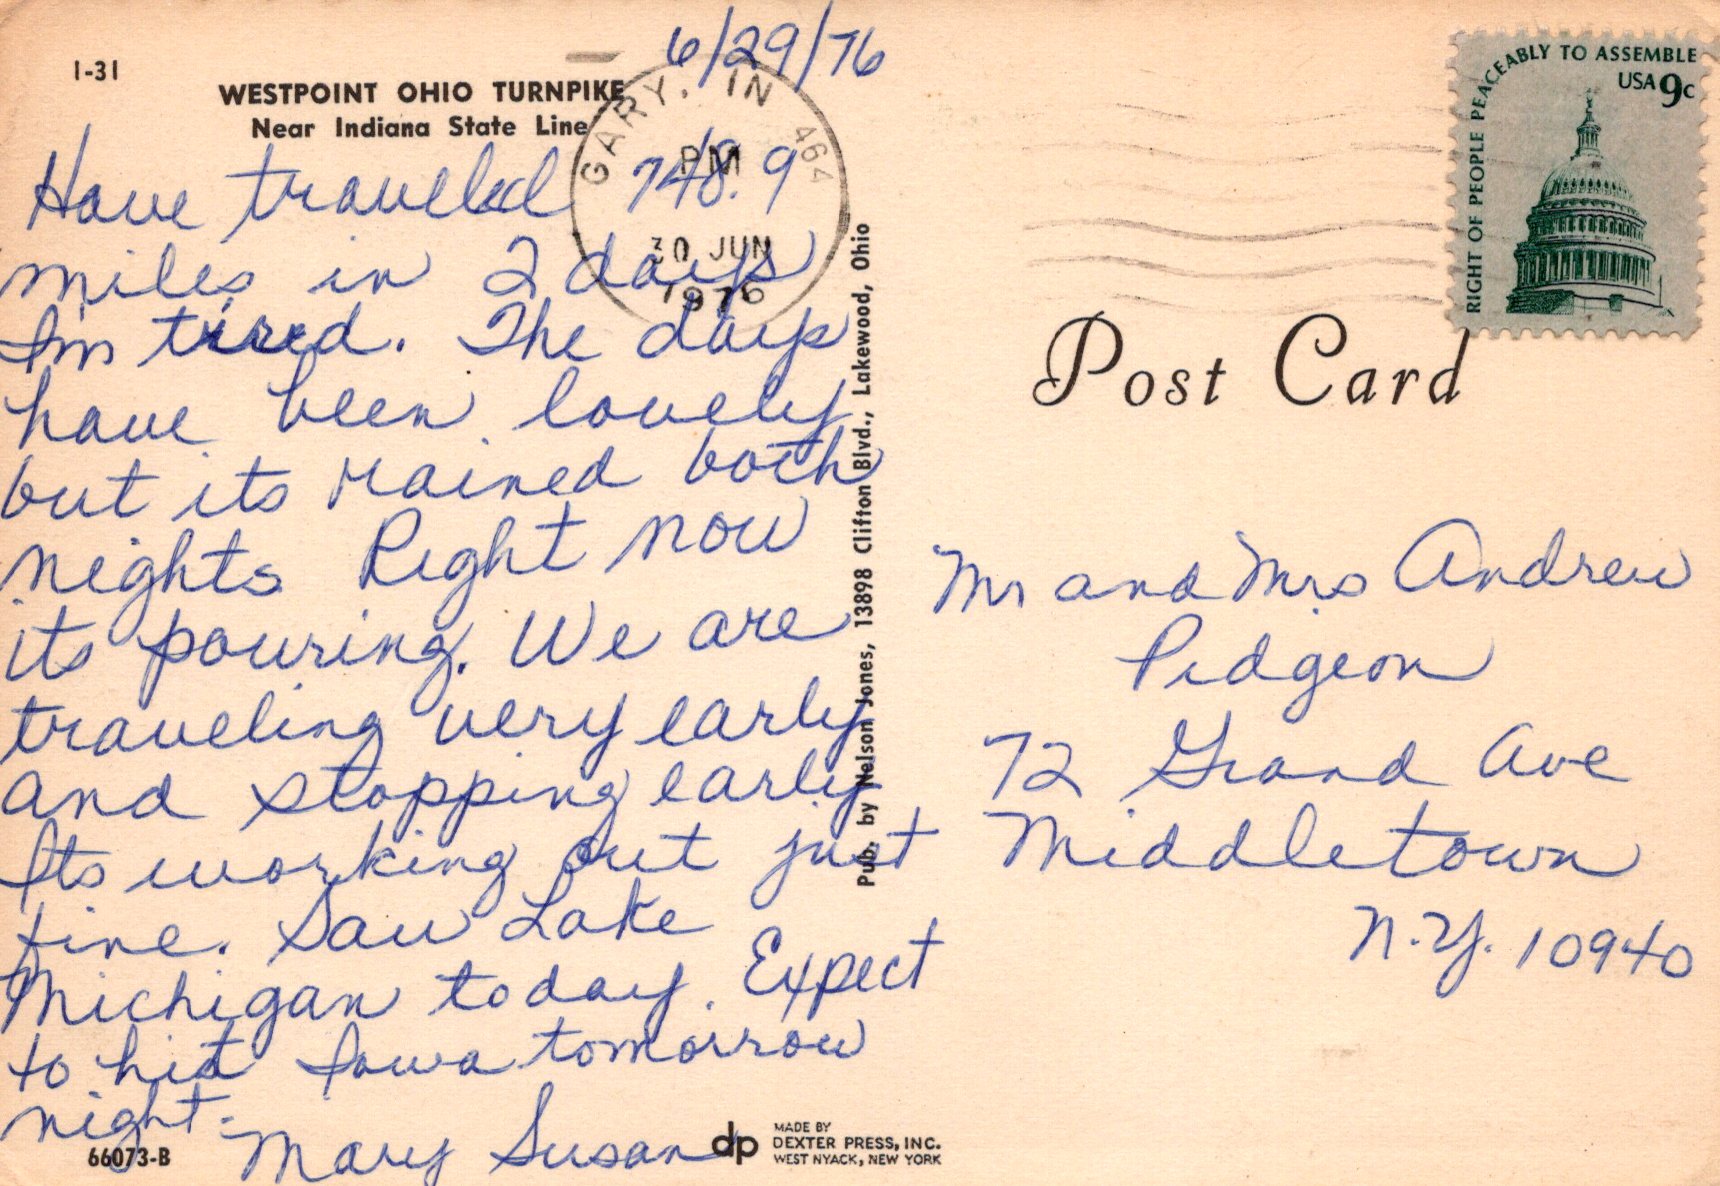 1-31
WESTPOINT OHIO TURNPIKE
Near Indiana State Line
6/29/76
Have traveled 748.9
miles in 2 days
Im tired. The days
have been lovely
but its rained both
nights. Right now
its pouring. We are
traveling very early
and stopping early
Its working out just
fine. Saw Lake
Michigan today. Expect
to hit Iowa tomorrow
night.
Mary Susan
66073-B
GARY, IN 464
PM
30 JUN
1976
Pub. by Nelson Jones, 13898 Clifton Blvd., Lakewood, Ohio
dp
MADE BY
DEXTER PRESS, INC.
WEST NYACK, NEW YORK
RIGHT OF PEOPLE PEACEABLY TO ASSEMBLE
USA 9c
Post Card
Mr and Mrs Andrew
Pidgeon
72 Grand Ave
Middletown
N.Y. 10940